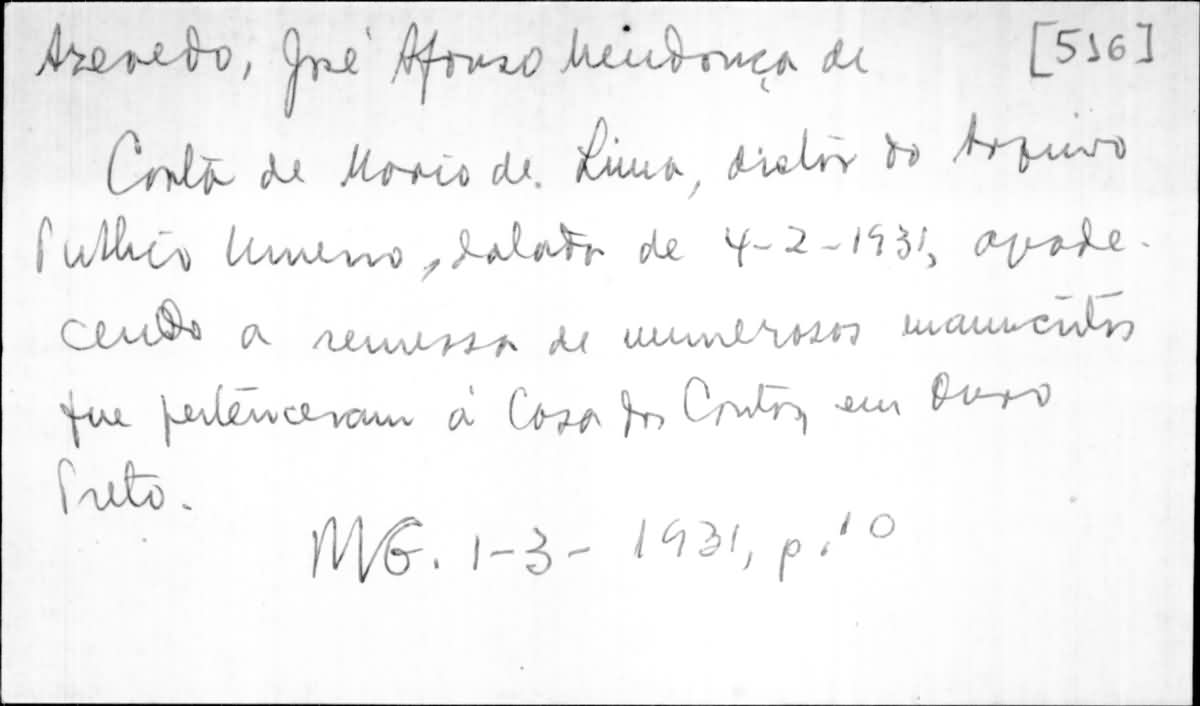 Azevedo, José Afonso Mendonça de [516]
Carta de Mario de Lima, diretor do Arquivo
Publico Mineiro, datada de 4-2-1931, agrade-
cendo a remessa de numerosos manuscritos
que pertenceram á Casa dos Contos, em Ouro
Preto.
MG. 1-3-1931, p. 10